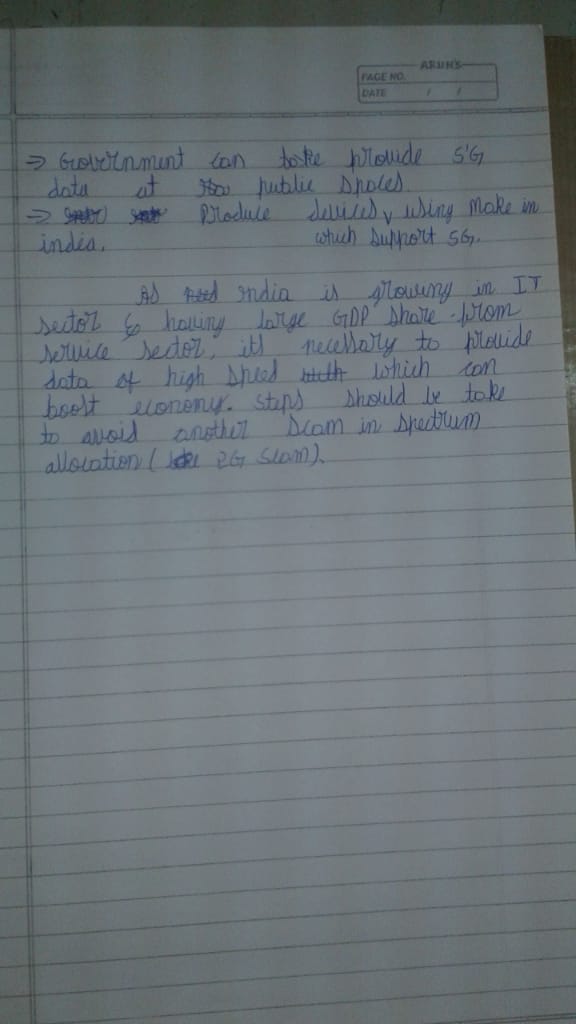 ARUN'S
PAGE NO.
DATE / /
⇒ Government can take provide 5G
data at public spaces.
⇒ Produce devices, using Make in
india. which support 5G.
As India is growing in IT
sector & having large GDP share from
service sector, its necessary to provide
data of high speed which can
boost economy. Steps should be take
to avoid another scam in spectrum
allocation ( 2G Scam).